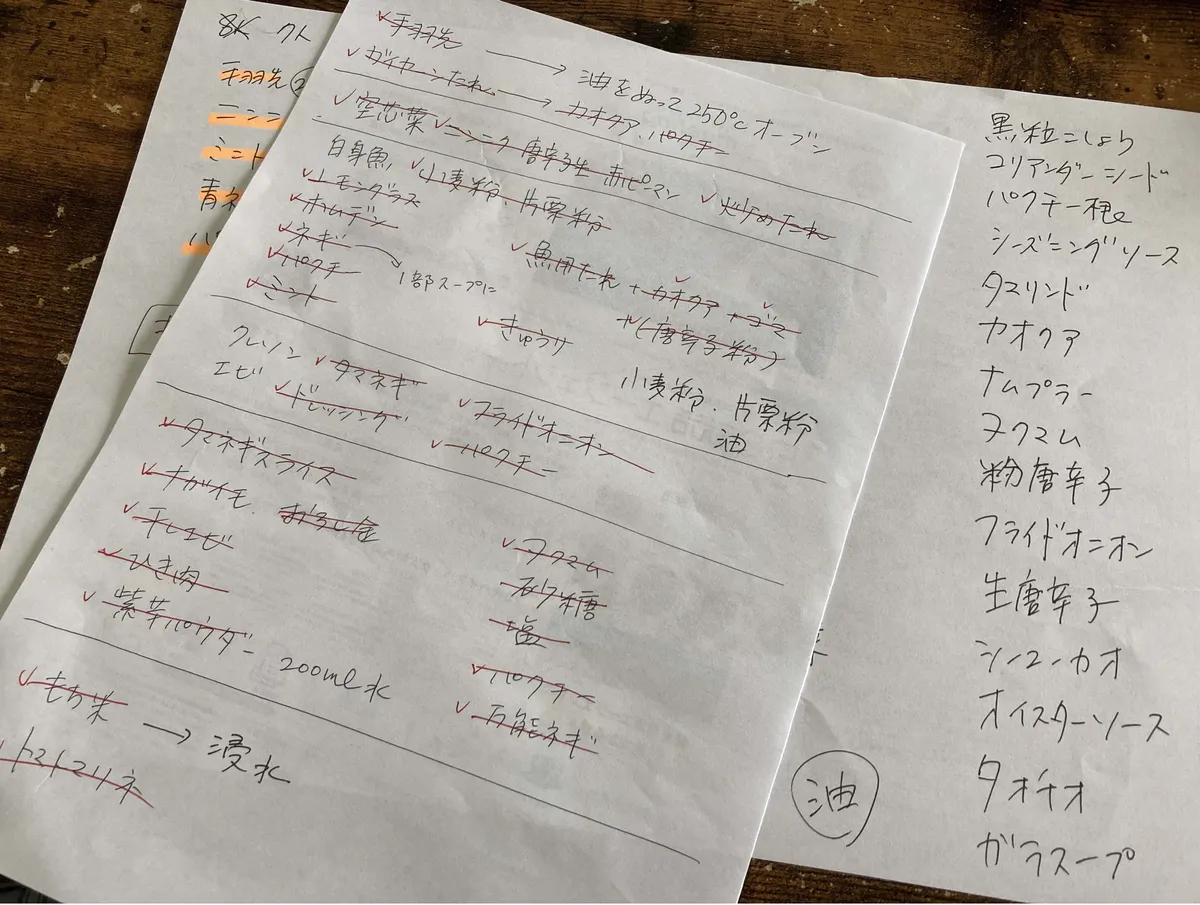 8K クト
手羽先②
ニンニ
ミント
青ネ
手羽先 → 油をぬって250℃オーブン
ガイヤーンたれ → カオクア、パクチー
空芯菜 ニンニク 唐辛子生 赤ピーマン 炒めたれ
白身魚 小麦粉、片栗粉
レモングラス
ホムデン
ネギ → 1部スープに
パクチー
ミント
魚用たれ + カオクア + ゴマ
+(唐辛子粉)
きゅうり
小麦粉、片栗粉
油
クレソン タマネギ フライドオニオン
エビ ドレッシング パクチー
タマネギスライス
ナガイモ、おろし金
干しエビ
ひき肉
紫芋パウダー 200ml水
ヌクマム
砂糖
塩
パクチー
万能ネギ
もち米 → 浸水
トマトマリネ
黒粒こしょう
コリアンダーシード
パクチー根
シーズニングソース
タマリンド
カオクア
ナムプラー
ヌクマム
粉唐辛子
フライドオニオン
生唐辛子
シーユーカオ
オイスターソース
タオチオ
ガラスープ
油